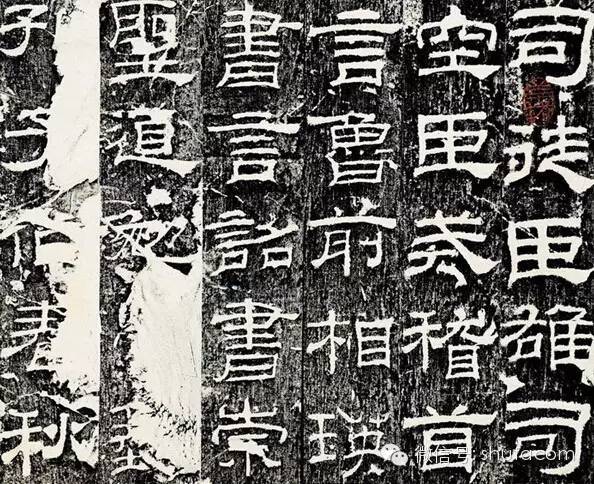 司徒臣雄司
空臣戒稽首
言魯前相瑛
書言詔書崇
聖道勉藝
孔子作春秋
微信号: shufa.com